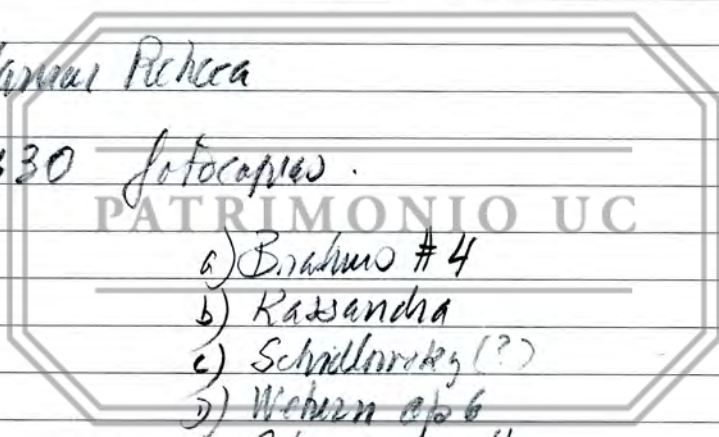 Rebeca
30 fotocopias.
PATRIMONIO UC
a) Brahms #4
b) Kassandra
c) Schidlowsky (?)
D) Webern op 6